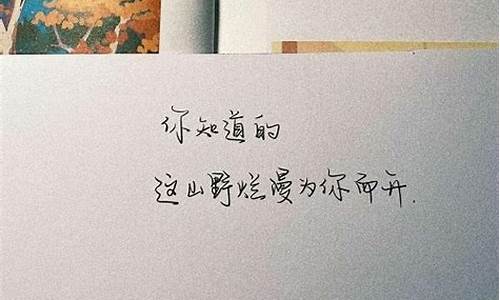 你知道的
这山野烂漫为你而开.